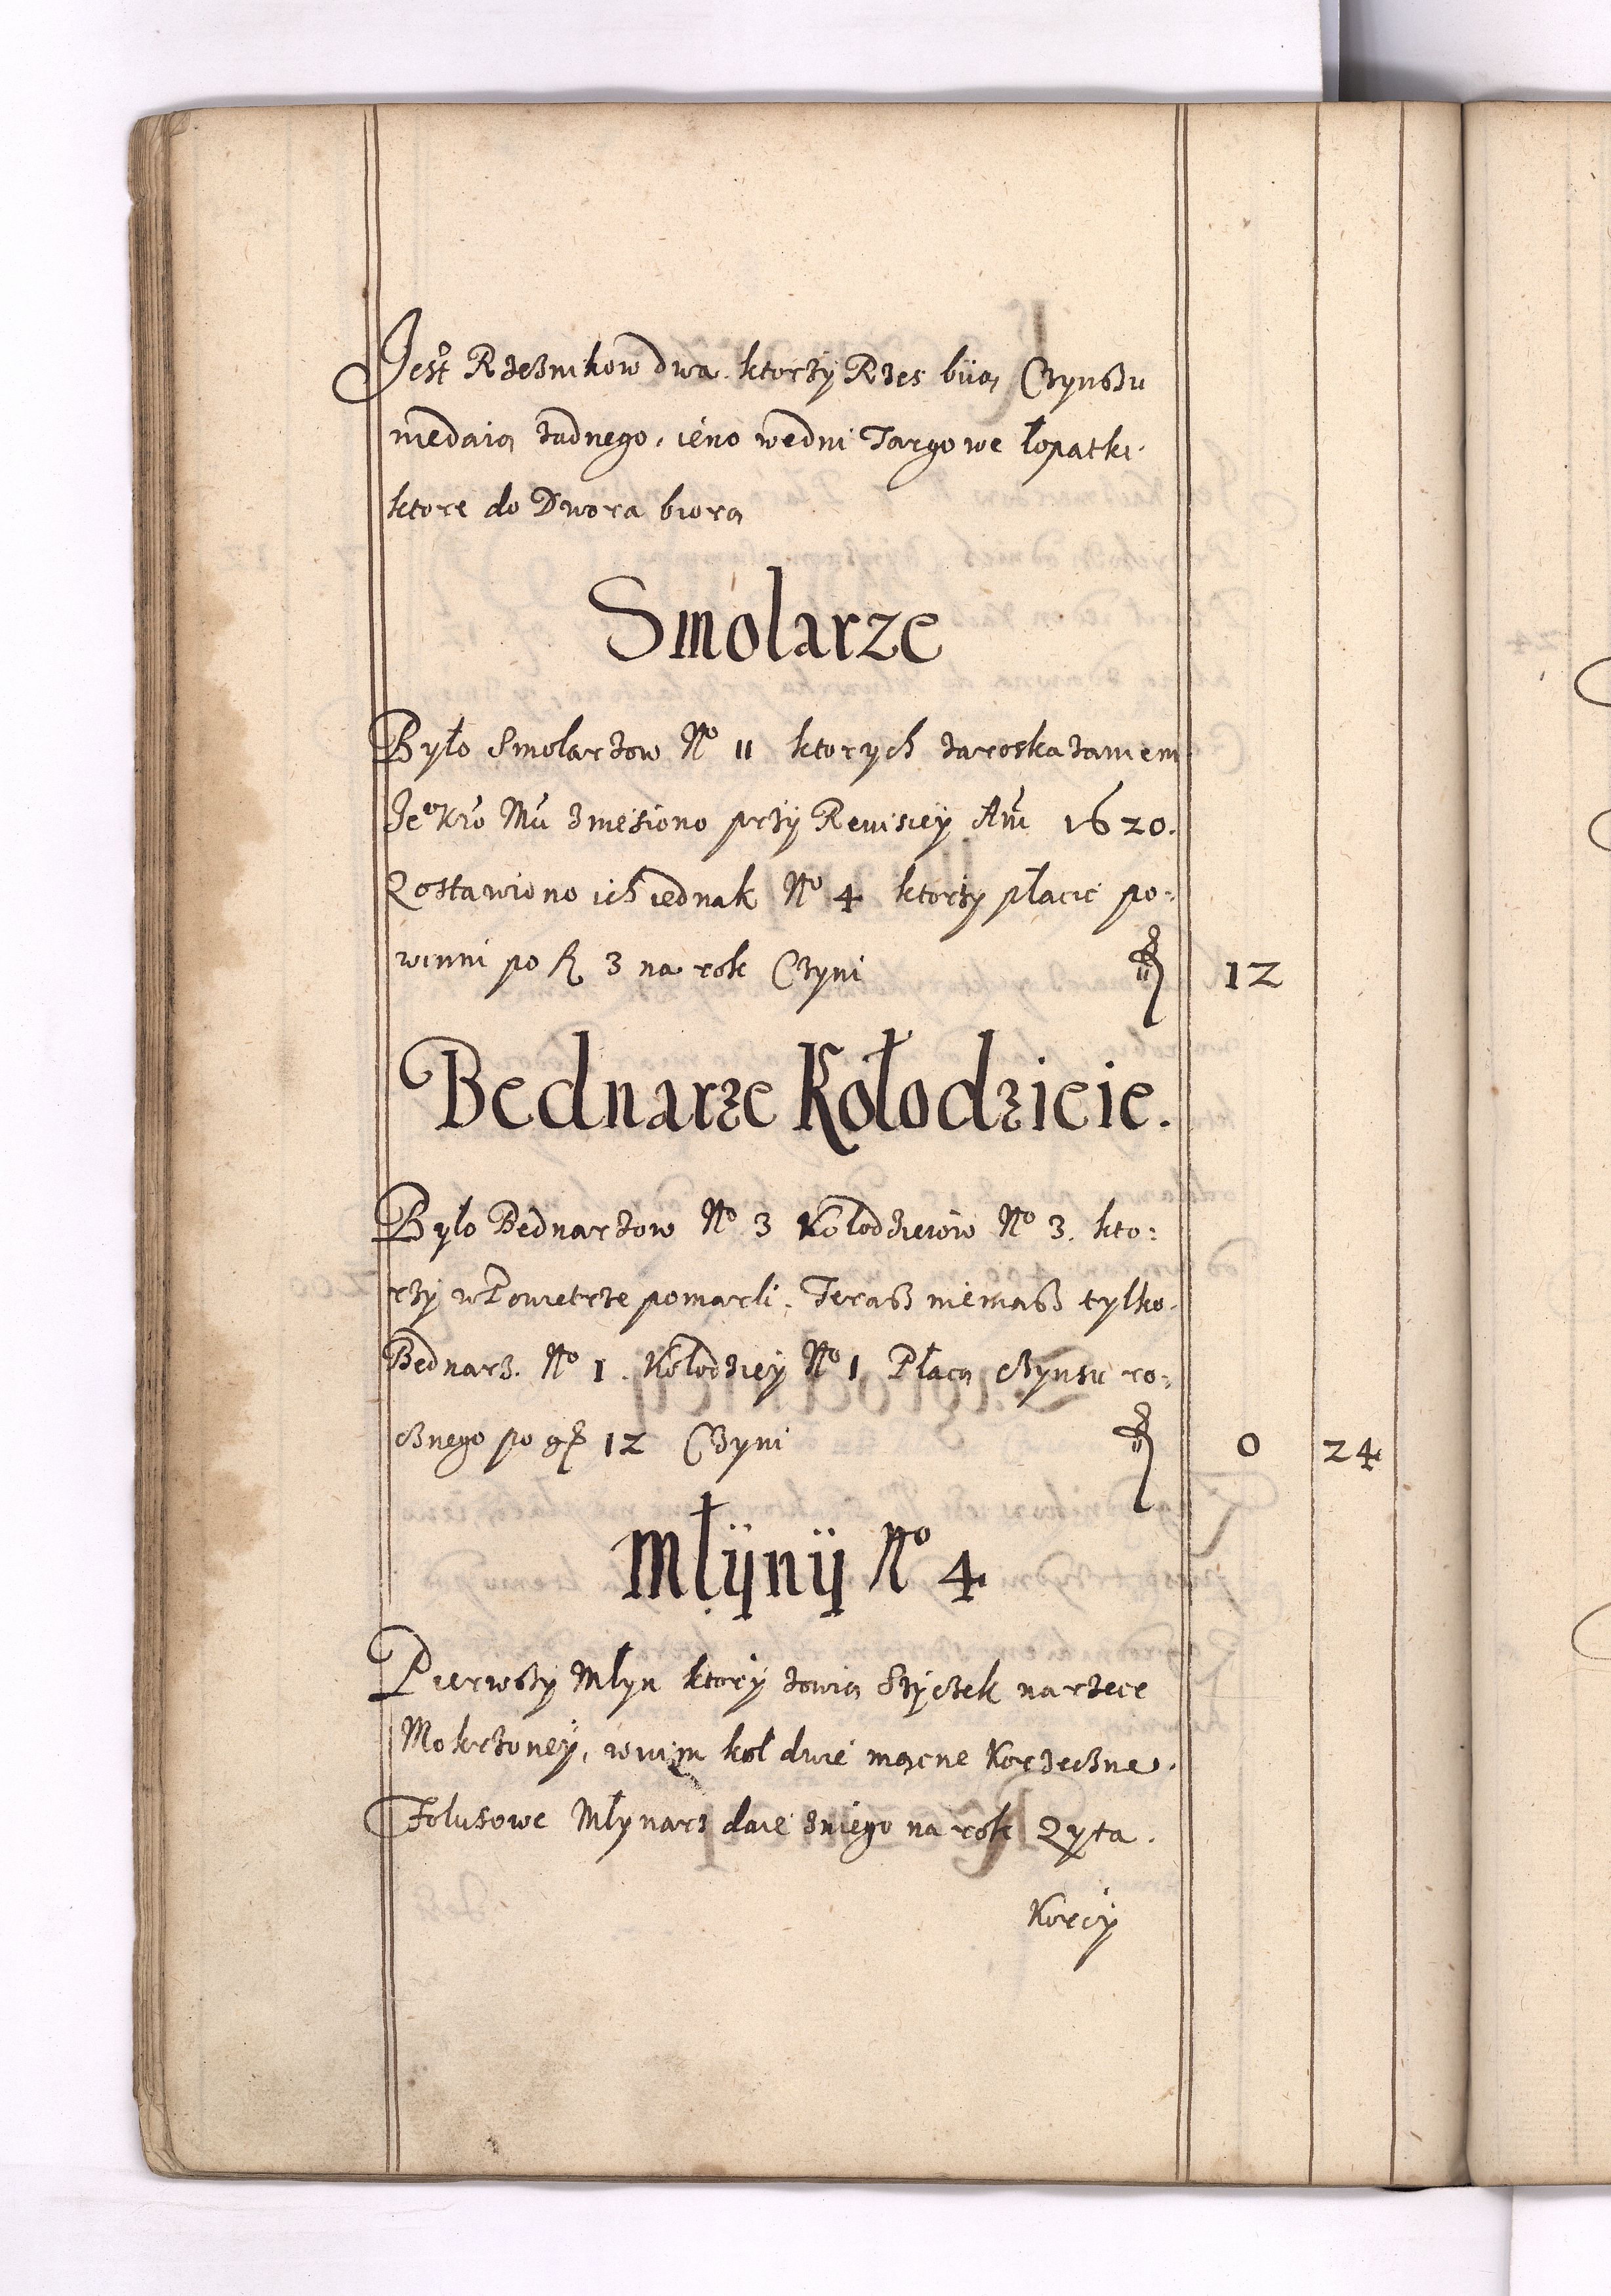 Jest Rzeznikow dwa. ktorzÿ Rzes biią Czynszu
niedaią zadnego, ieno wedni Targowe łopatki.
ktore do Dwora biorą
Smolarze
Było Smolarzow No 11 ktorych zaroskazaniem
Je° Kró Mći zniesiono przÿ Rewisieÿ Ani 1620.
Zostawiono ich iednak No 4 ktorzÿ płacic po:
winni po fl 3 na rok Czyni 12
Bednarze Kołodzieie.
Było Bednarzow No 3 Kołodzieiow No 3. kto:
rzÿ w Powietrze pomarli. Terasz niemasz tylko.
Bednarz. No 1. Kołodzieÿ No 1 Płacą czynsu ro:
cznego po gr 12 Czyni 0 24
Młÿnÿ No 4
Pierwszy Młyn ktorÿ zowią Szÿczek na rzece
Mokrzoneÿ, wnim koł dwie mącne Korzeczne.
Folusowe Młynarz daie zniego na rok Zyta.
Korcÿ